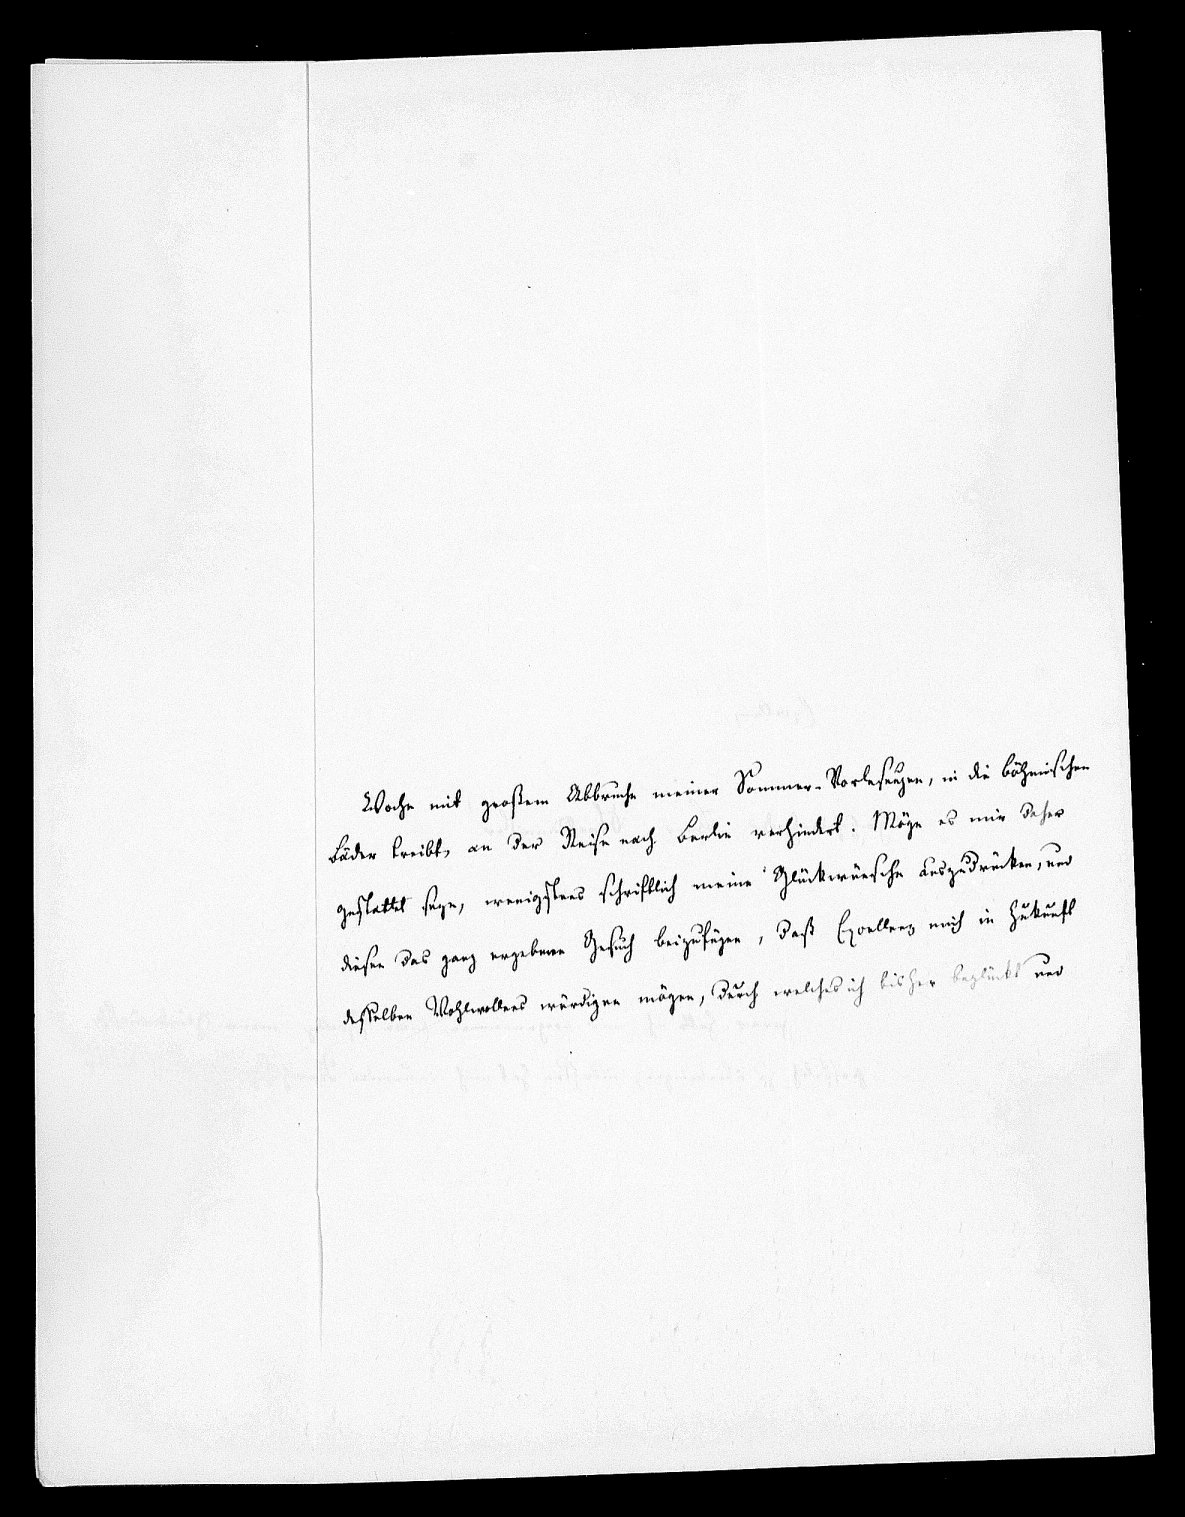 Woche mit großem Abbruche meiner Sommer-Vorlesungen, in die böhmischen
Bäder treibt, an der Reise nach Berlin verhindert. Möge es mir daher
gestattet seyn, wenigstens schriftlich meine Glückwünsche auszudrücken, und
diesen das ganz ergebene Gesuch beizufügen, daß Excellenz mich in Zukunft
desselben Wohlwollens würdigen mögen, durch welches ich bisher beglückt und